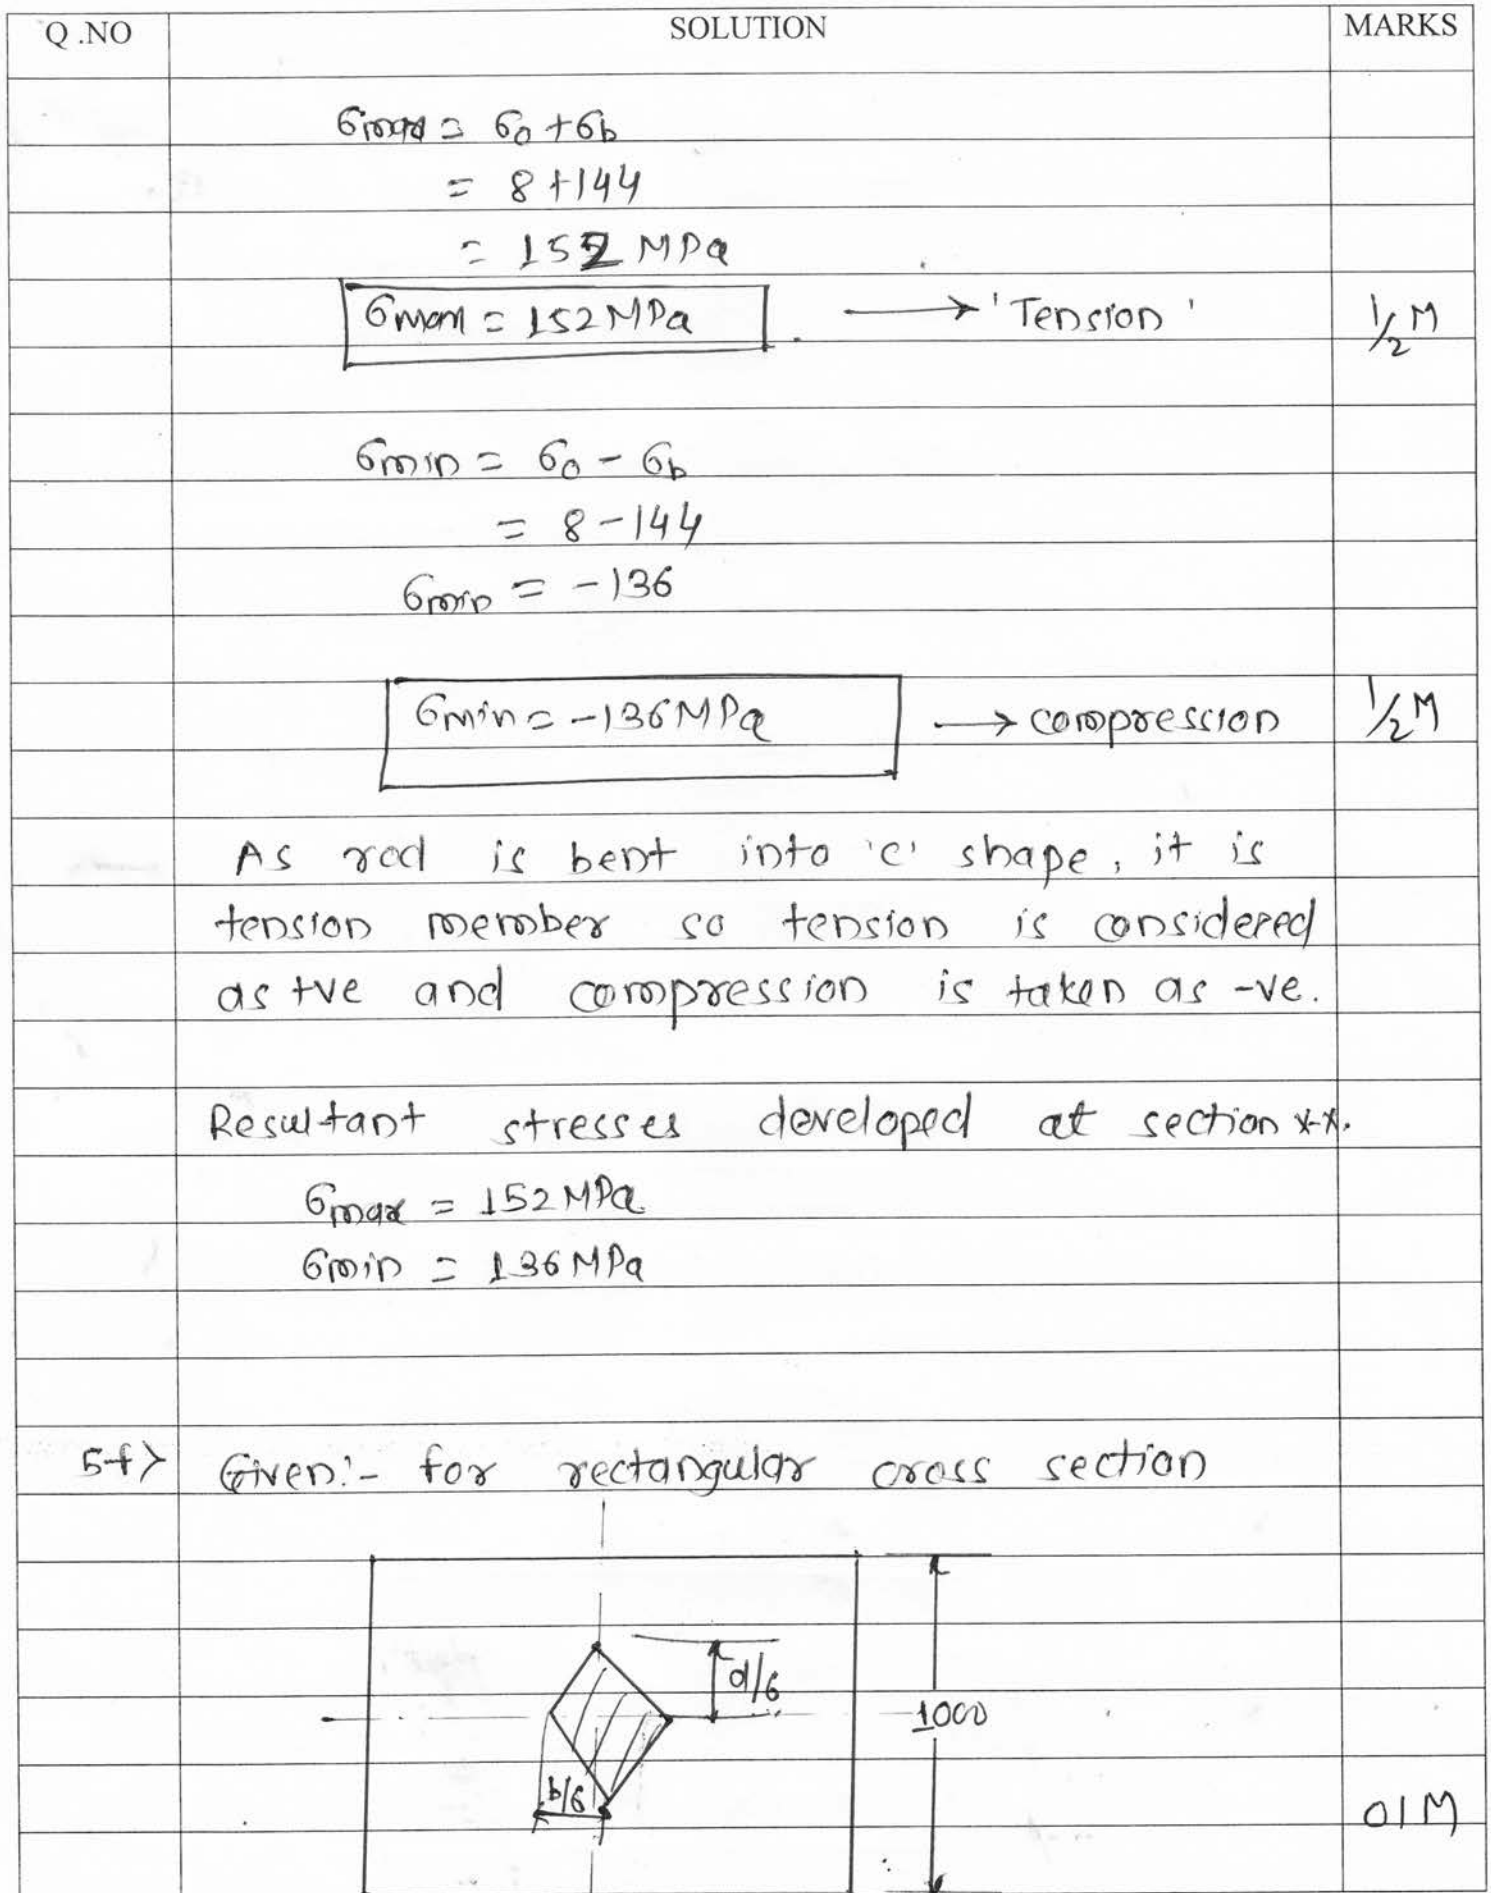 Q .NO SOLUTION MARKS
σmax = σ0 + σb
= 8 + 144
= 152 MPa
σmax = 152 MPa → 'Tension' 1/2 M
σmin = σ0 - σb
= 8 - 144
σmin = -136
σmin = -136 MPa → compression 1/2 M
As rod is bent into 'c' shape, it is
tension member so tension is considered
as +ve and compression is taken as -ve.
Resultant stresses developed at section x-x.
σmax = 152 MPa
σmin = 136 MPa
5-f> Given:- for rectangular cross section
d/6
1000
b/6
01 M